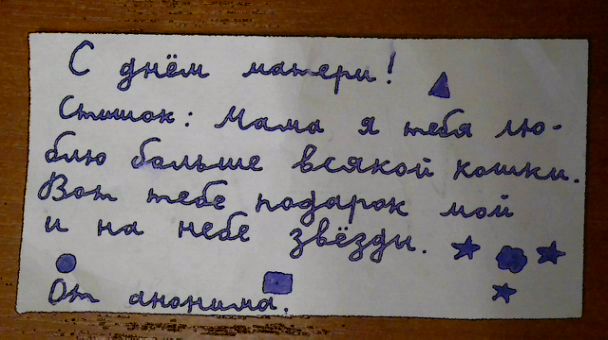 С днём матери!
Стишок: Мама я тебя лю-
блю больше всякой кошки.
Вот тебе подарок мой
и на небе звёзды.
От анонима.